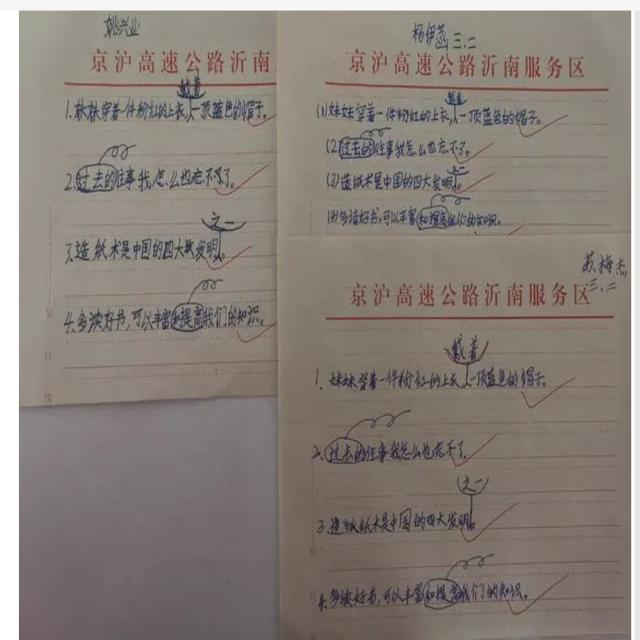 姚兴业
京沪高速公路沂南
戴着
1.妹妹穿着一件粉红的上衣,一顶蓝色的帽子。
2.过去的往事我怎么也忘不了。
之一
3.造纸术是中国的四大发明。
4.多读好书,可以丰富和提高我们的知识。
杨伊菡 三.二
京沪高速公路沂南服务区
戴着
(1)妹妹穿着一件粉红的上衣,一顶蓝色的帽子。
(2)过去的往事我怎么也忘不了。
之一
(3)造纸术是中国的四大发明。
(4)多读好书,可以丰富和提高我们的知识。
苏梅杰
三.二
京沪高速公路沂南服务区
戴着
1.妹妹穿着一件粉红的上衣,一顶蓝色的帽子。
2.过去的往事我怎么也忘不了。
之一
3.造纸术是中国的四大发明。
4.多读好书,可以丰富和提高我们的知识。